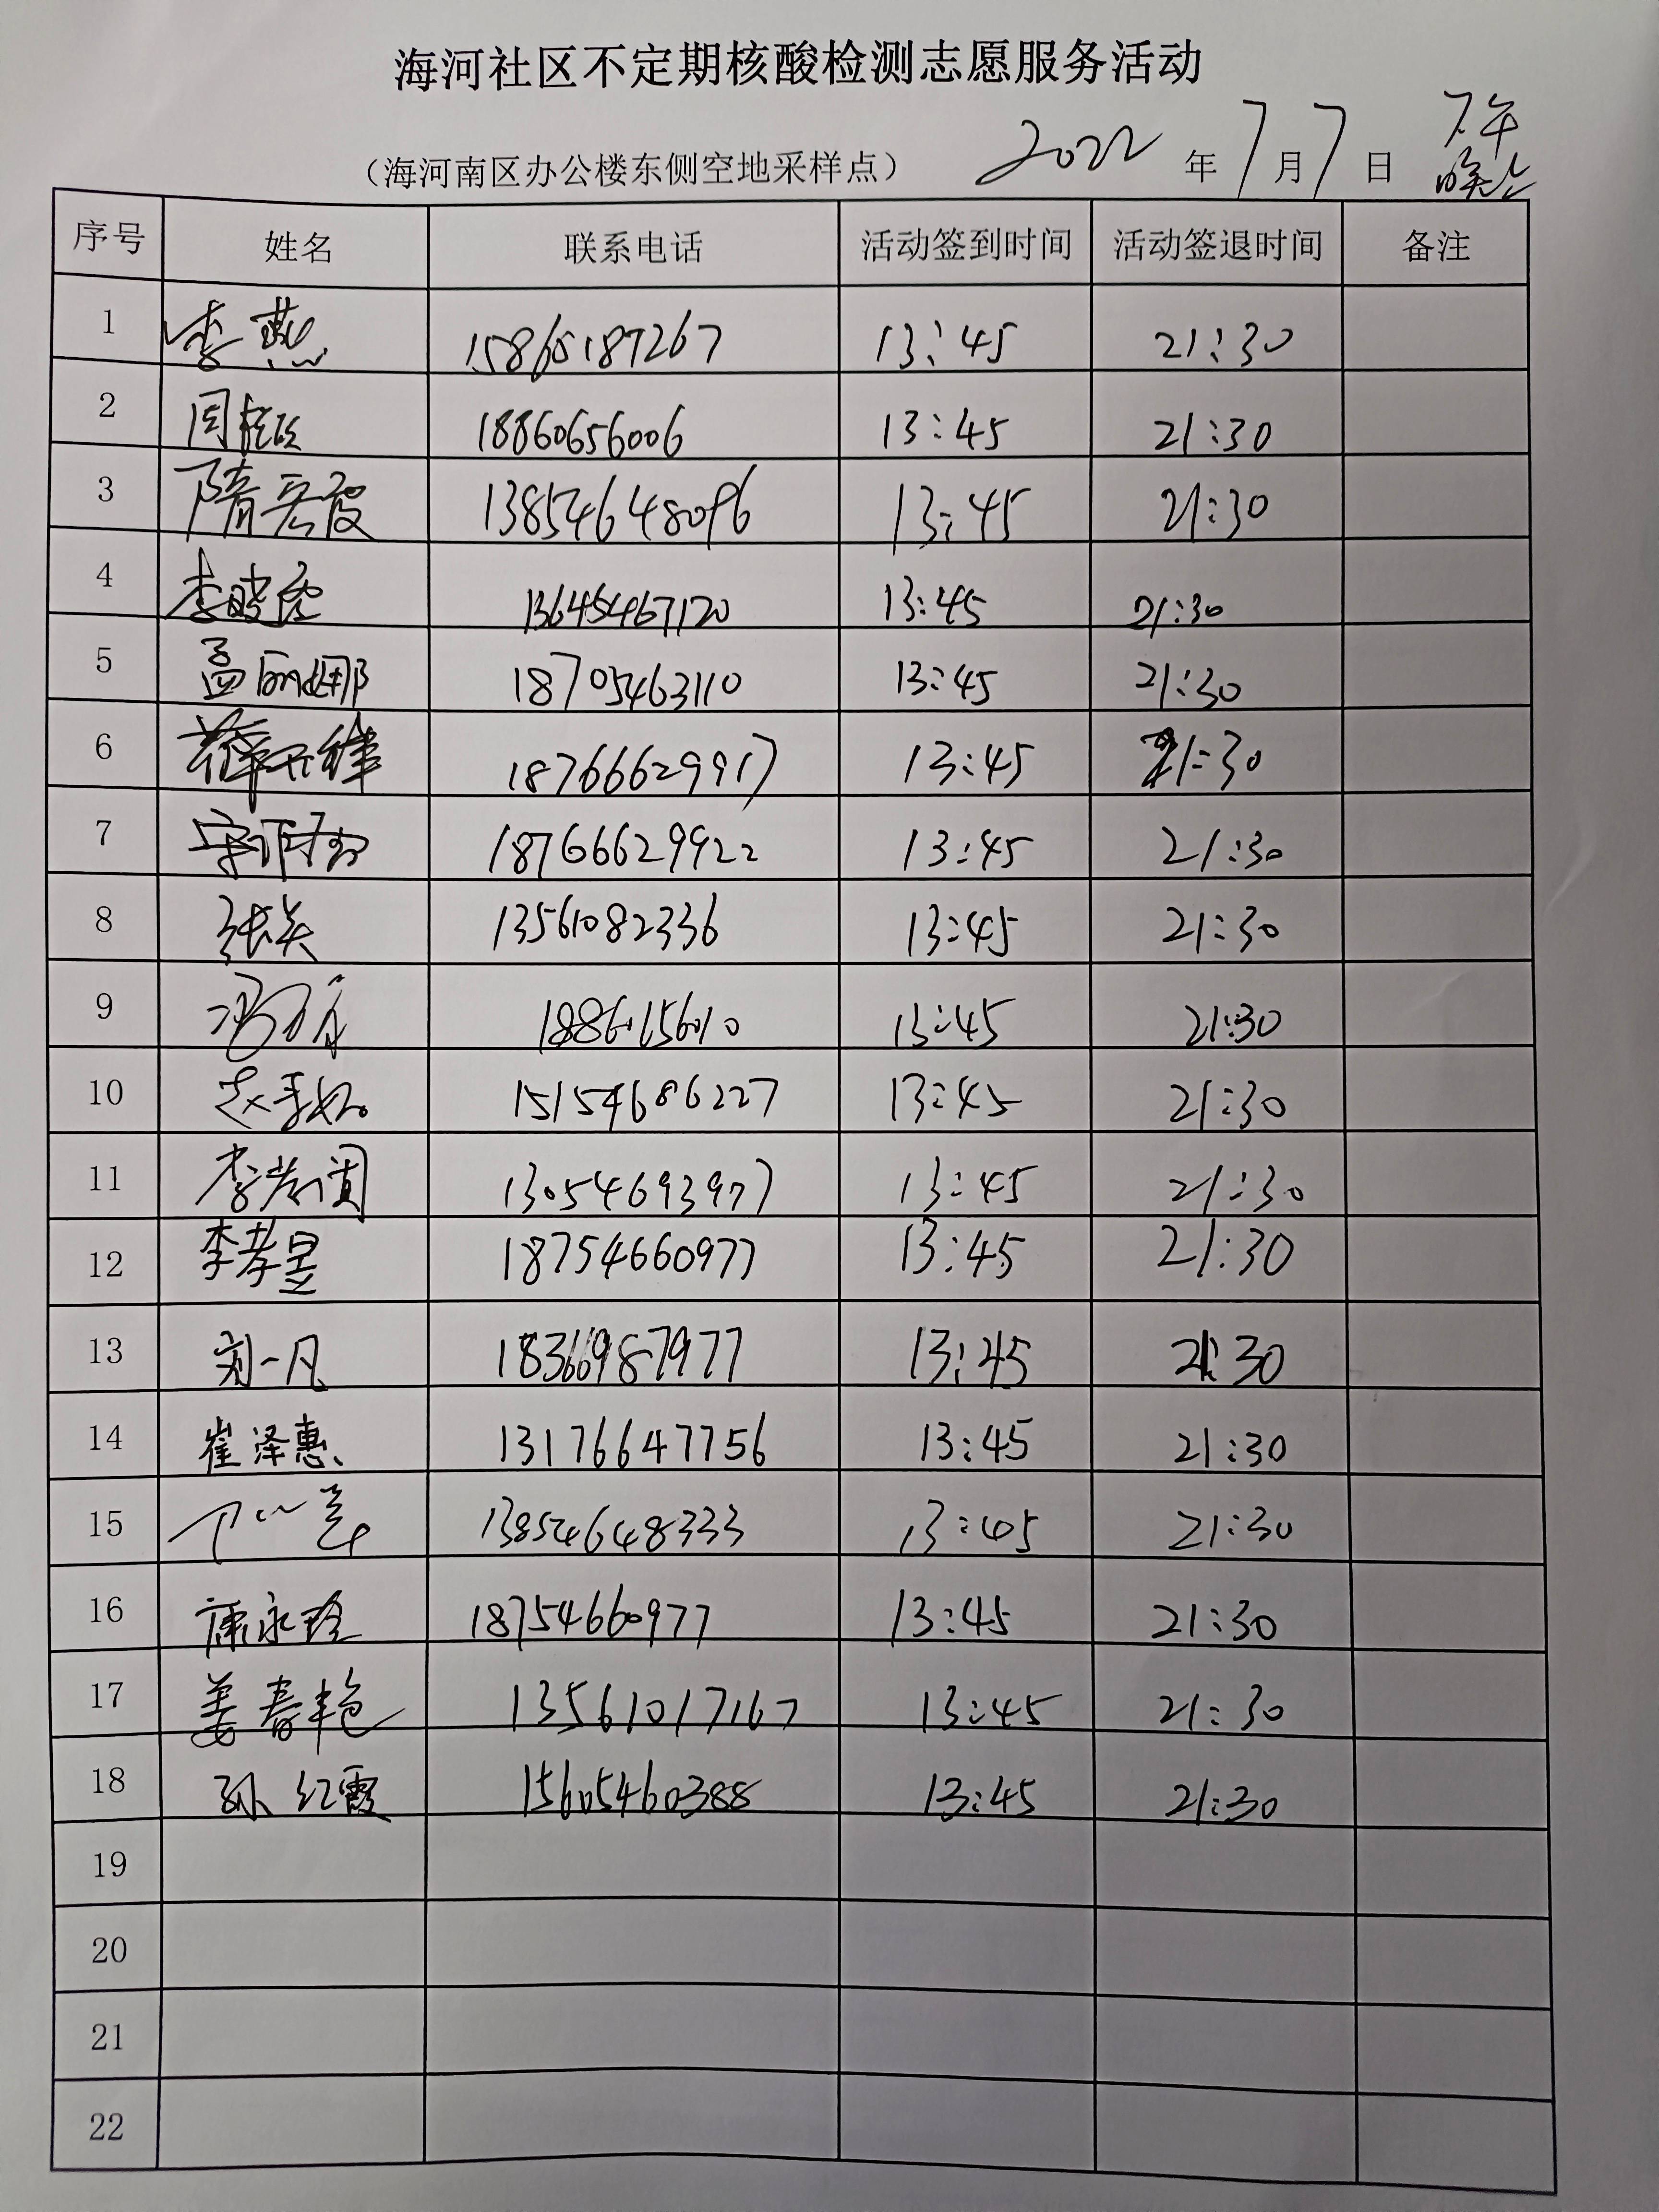 海河社区不定期核酸检测志愿服务活动
(海河南区办公楼东侧空地采样点) 2022 年 7 月 7 日 下午 晚上
序号 姓名 联系电话 活动签到时间 活动签退时间 备注
1 李燕 15865187267 13:45 21:30
2 周 18860656006 13:45 21:30
3 隋宏霞 13854648096 13:45 21:30
4 李晓霞 13645467120 13:45 21:30
5 孟丽娜 18705463110 13:45 21:30
6 薛 18766629917 13:45 21:30
7 18766629922 13:45 21:30
8 张英 13561082336 13:45 21:30
9 冯 18860156010 13:45 21:30
10 赵 15154686227 13:45 21:30
11 李 13054693977 13:45 21:30
12 李孝昱 18754660977 13:45 21:30
13 刘一凡 18366987977 13:45 21:30
14 崔泽惠 13176647756 13:45 21:30
15 13854648333 13:45 21:30
16 康永玲 18754660977 13:45 21:30
17 姜春艳 13561017167 13:45 21:30
18 孙红霞 15605460388 13:45 21:30
19
20
21
22